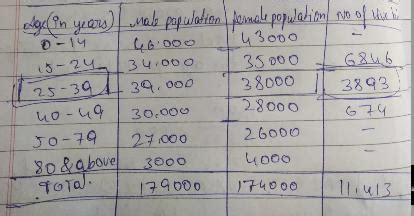 Age (in years) Male population Female population No of
0-14 46.000 43000 -
15-24 34.000 35000 6846
25-39 39.000 38000 3893
40-49 30.000 28000 674
50-79 27.000 26000 -
80 & above 3000 4000 -
Total. 179000 174000 11.413